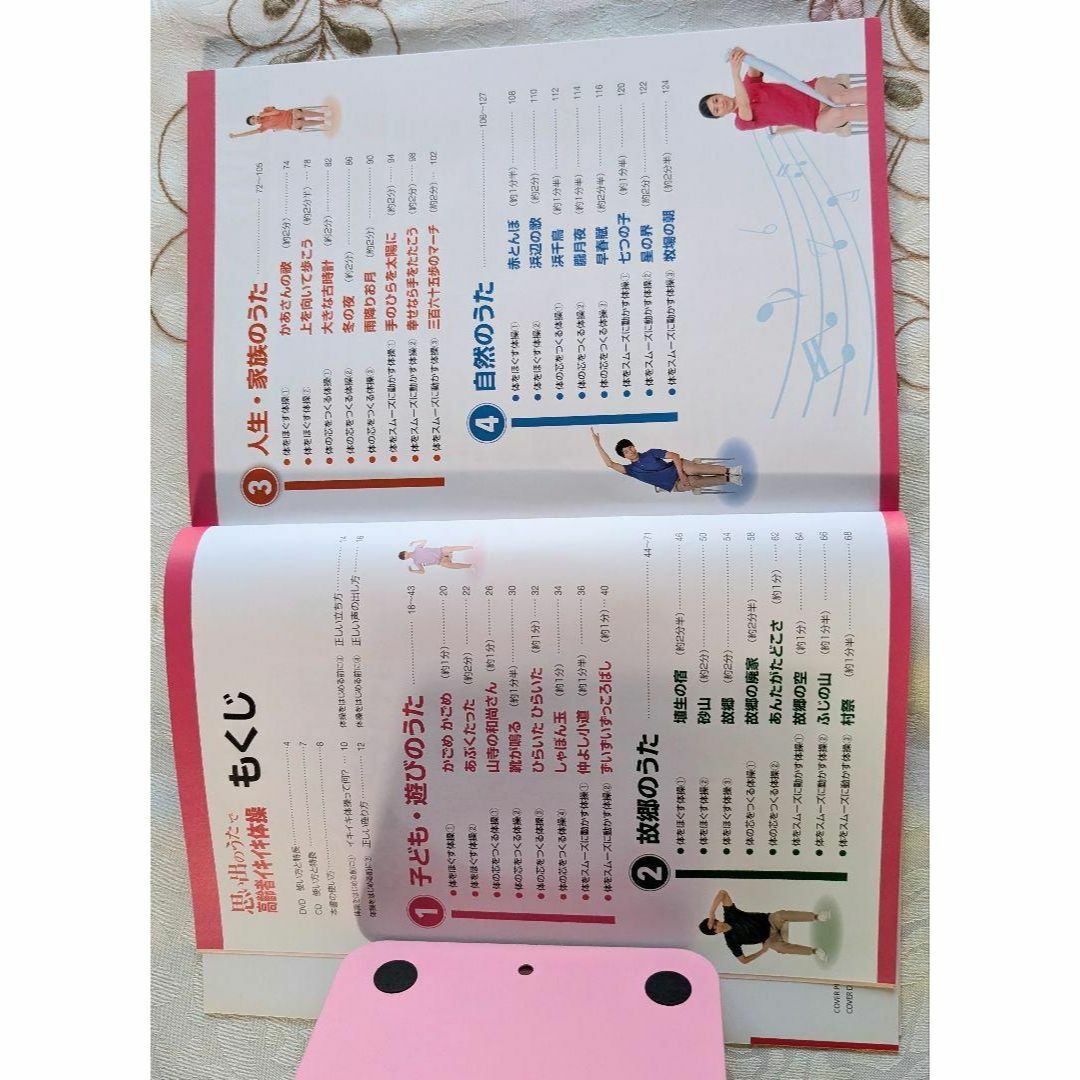 思い出のうたで
高齢者イキイキ体操
もくじ
DVD 使い方と特長 4
CD 使い方と特長 7
本書の使い方 8
体操をはじめる前に① イキイキ体操って何? 10
体操をはじめる前に② 正しい座り方 12
体操をはじめる前に③ 正しい立ち方 14
体操をはじめる前に④ 正しい声の出し方 16
1 子ども・遊びのうた 18〜43
●体をほぐす体操① かごめ かごめ (約1分) 20
●体をほぐす体操② あぶくたった (約2分) 22
●体の芯をつくる体操① 山寺の和尚さん (約1分) 26
●体の芯をつくる体操② 靴が鳴る (約1分半) 30
●体の芯をつくる体操③ ひらいた ひらいた (約1分) 32
●体の芯をつくる体操④ しゃぼん玉 (約1分) 34
●体をスムーズに動かす体操① 仲よし小道 (約1分半) 36
●体をスムーズに動かす体操② ずいずいずっころばし (約1分) 40
2 故郷のうた 44〜71
●体をほぐす体操① 埴生の宿 (約2分半) 46
●体をほぐす体操② 砂山 (約2分) 50
●体をほぐす体操③ 故郷 (約2分) 54
●体の芯をつくる体操① 故郷の廃家 (約2分半) 58
●体の芯をつくる体操② あんたがたどこさ (約1分) 62
●体をスムーズに動かす体操① 故郷の空 (約1分) 64
●体をスムーズに動かす体操② ふじの山 (約1分半) 66
●体をスムーズに動かす体操③ 村祭 (約1分半) 68
3 人生・家族のうた 72〜105
●体をほぐす体操① かあさんの歌 (約2分) 74
●体をほぐす体操② 上を向いて歩こう (約2分半) 78
●体の芯をつくる体操① 大きな古時計 (約2分) 82
●体の芯をつくる体操② 冬の夜 (約2分) 86
●体の芯をつくる体操③ 雨降りお月 (約2分) 90
●体をスムーズに動かす体操① 手のひらを太陽に (約2分) 94
●体をスムーズに動かす体操② 幸せなら手をたたこう (約2分) 98
●体をスムーズに動かす体操③ 三百六十五歩のマーチ (約2分) 102
4 自然のうた 106〜127
●体をほぐす体操① 赤とんぼ (約1分半) 108
●体をほぐす体操② 浜辺の歌 (約2分) 110
●体の芯をつくる体操① 浜千鳥 (約1分半) 112
●体の芯をつくる体操② 朧月夜 (約1分半) 114
●体の芯をつくる体操③ 早春賦 (約2分半) 116
●体をスムーズに動かす体操① 七つの子 (約1分半) 120
●体をスムーズに動かす体操② 星の界 (約2分) 122
●体をスムーズに動かす体操③ 牧場の朝 (約2分半) 124
COVER
COVER